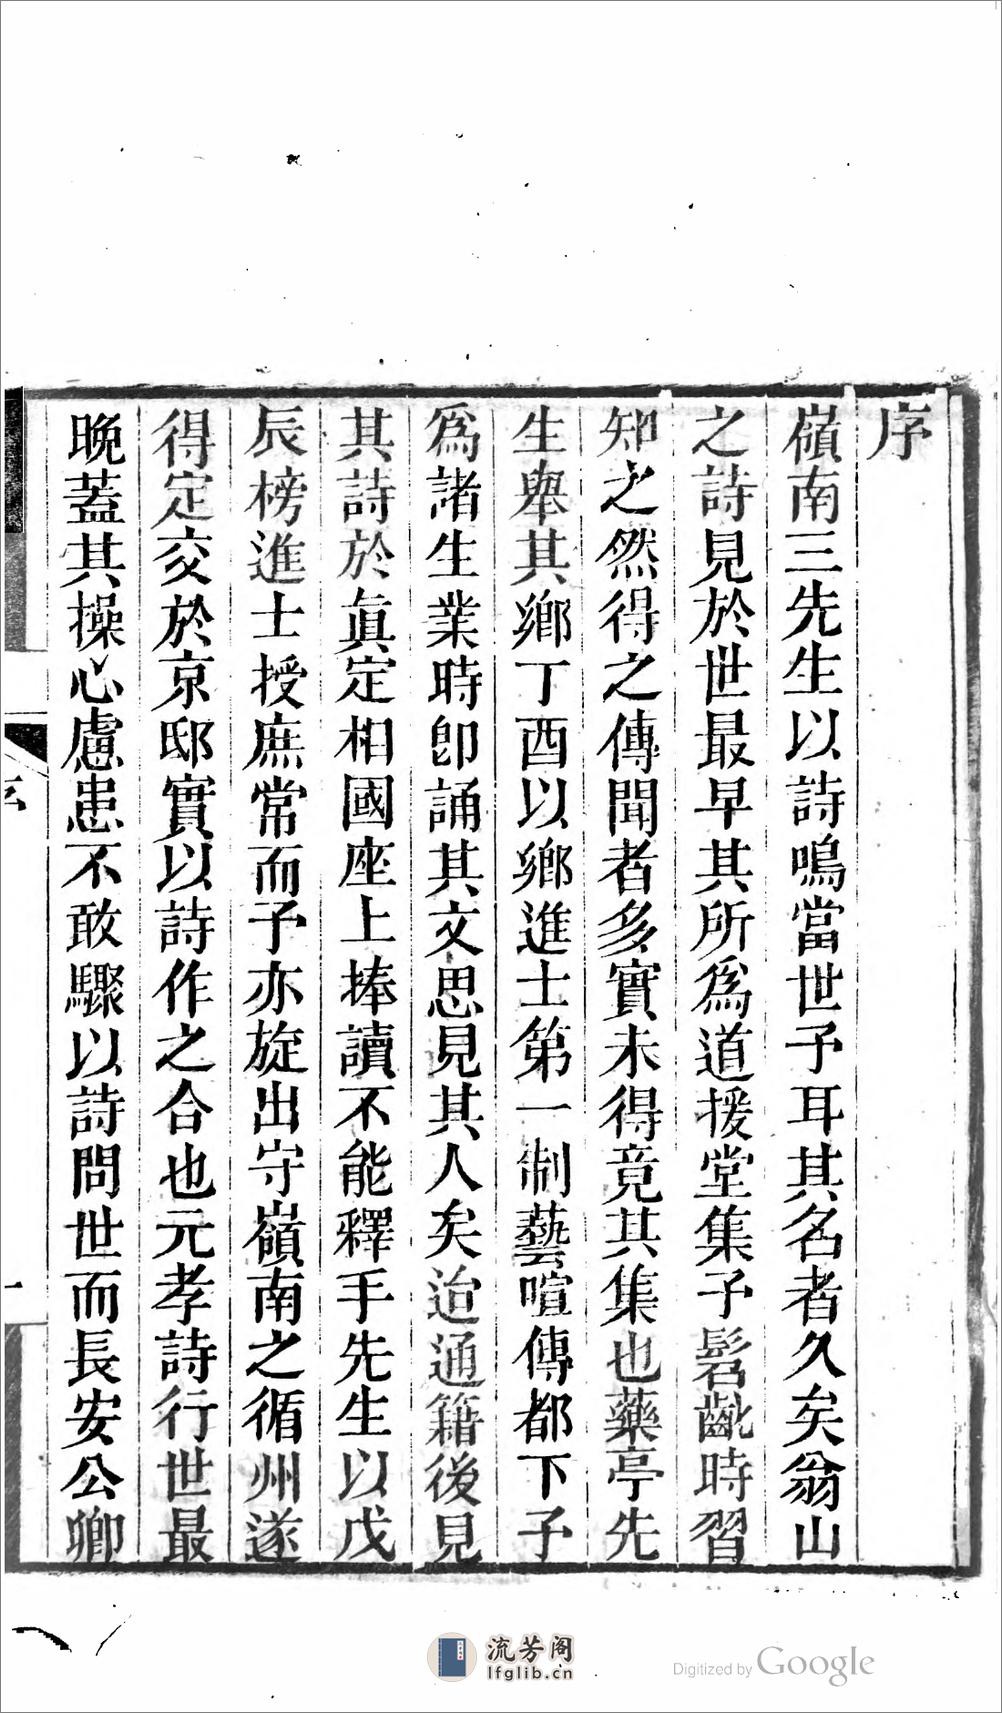 序
嶺南三先生以詩鳴當世予耳其名者久矣翁山
之詩見於世最早其所爲道援堂集予髫齔時習
知之然得之傳聞者多實未得竟其集也藥亭先
生舉其鄉丁酉以鄉進士第一制藝喧傳都下予
爲諸生業時卽誦其文思見其人矣迨通籍後見
其詩於眞定相國座上捧讀不能釋手先生以戊
辰榜進士授庶常而予亦旋出守嶺南之循州遂
得定交於京邸實以詩作之合也元孝詩行世最
晚蓋其操心慮患不敢驟以詩問世而長安公卿
一
流芳阁
lfglib.cn
Digitized by Google